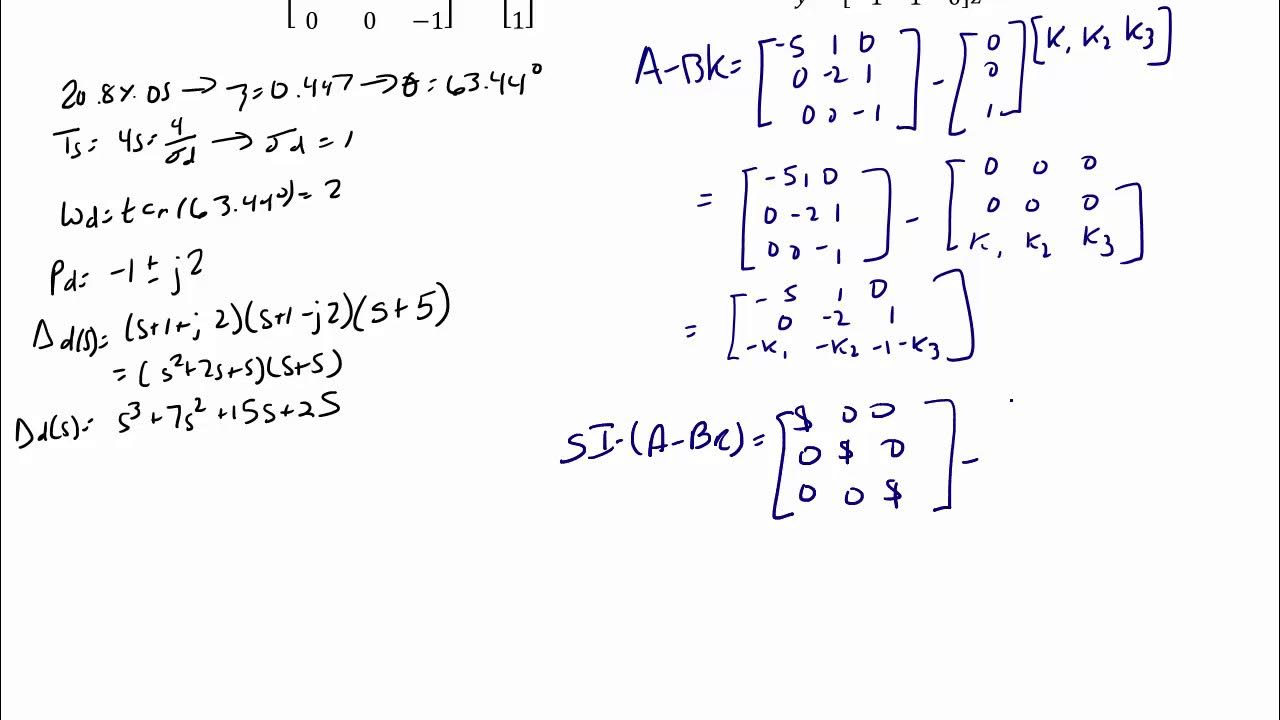 [ 0 0 −1 ] [ 1 ]
20.8% OS → ζ = 0.447 → θ = 63.44°
Ts = 4s = 4/σd → σd = 1
ωd = tan(63.44°) = 2
Pd = -1 ± j2
Δd(s) = (s+1+j2)(s+1-j2)(s+5)
= (s²+2s+5)(s+5)
Δd(s) = s³+7s²+15s+25
A-BK = [ -5 1 0
0 -2 1
0 0 -1 ] - [ 0
0
1 ] [K1 K2 K3]
= [ -5 1 0
0 -2 1
0 0 -1 ] - [ 0 0 0
0 0 0
K1 K2 K3 ]
= [ -5 1 0
0 -2 1
-K1 -K2 -1-K3 ]
SI-(A-BK) = [ S 0 0
0 S 0
0 0 S ] -